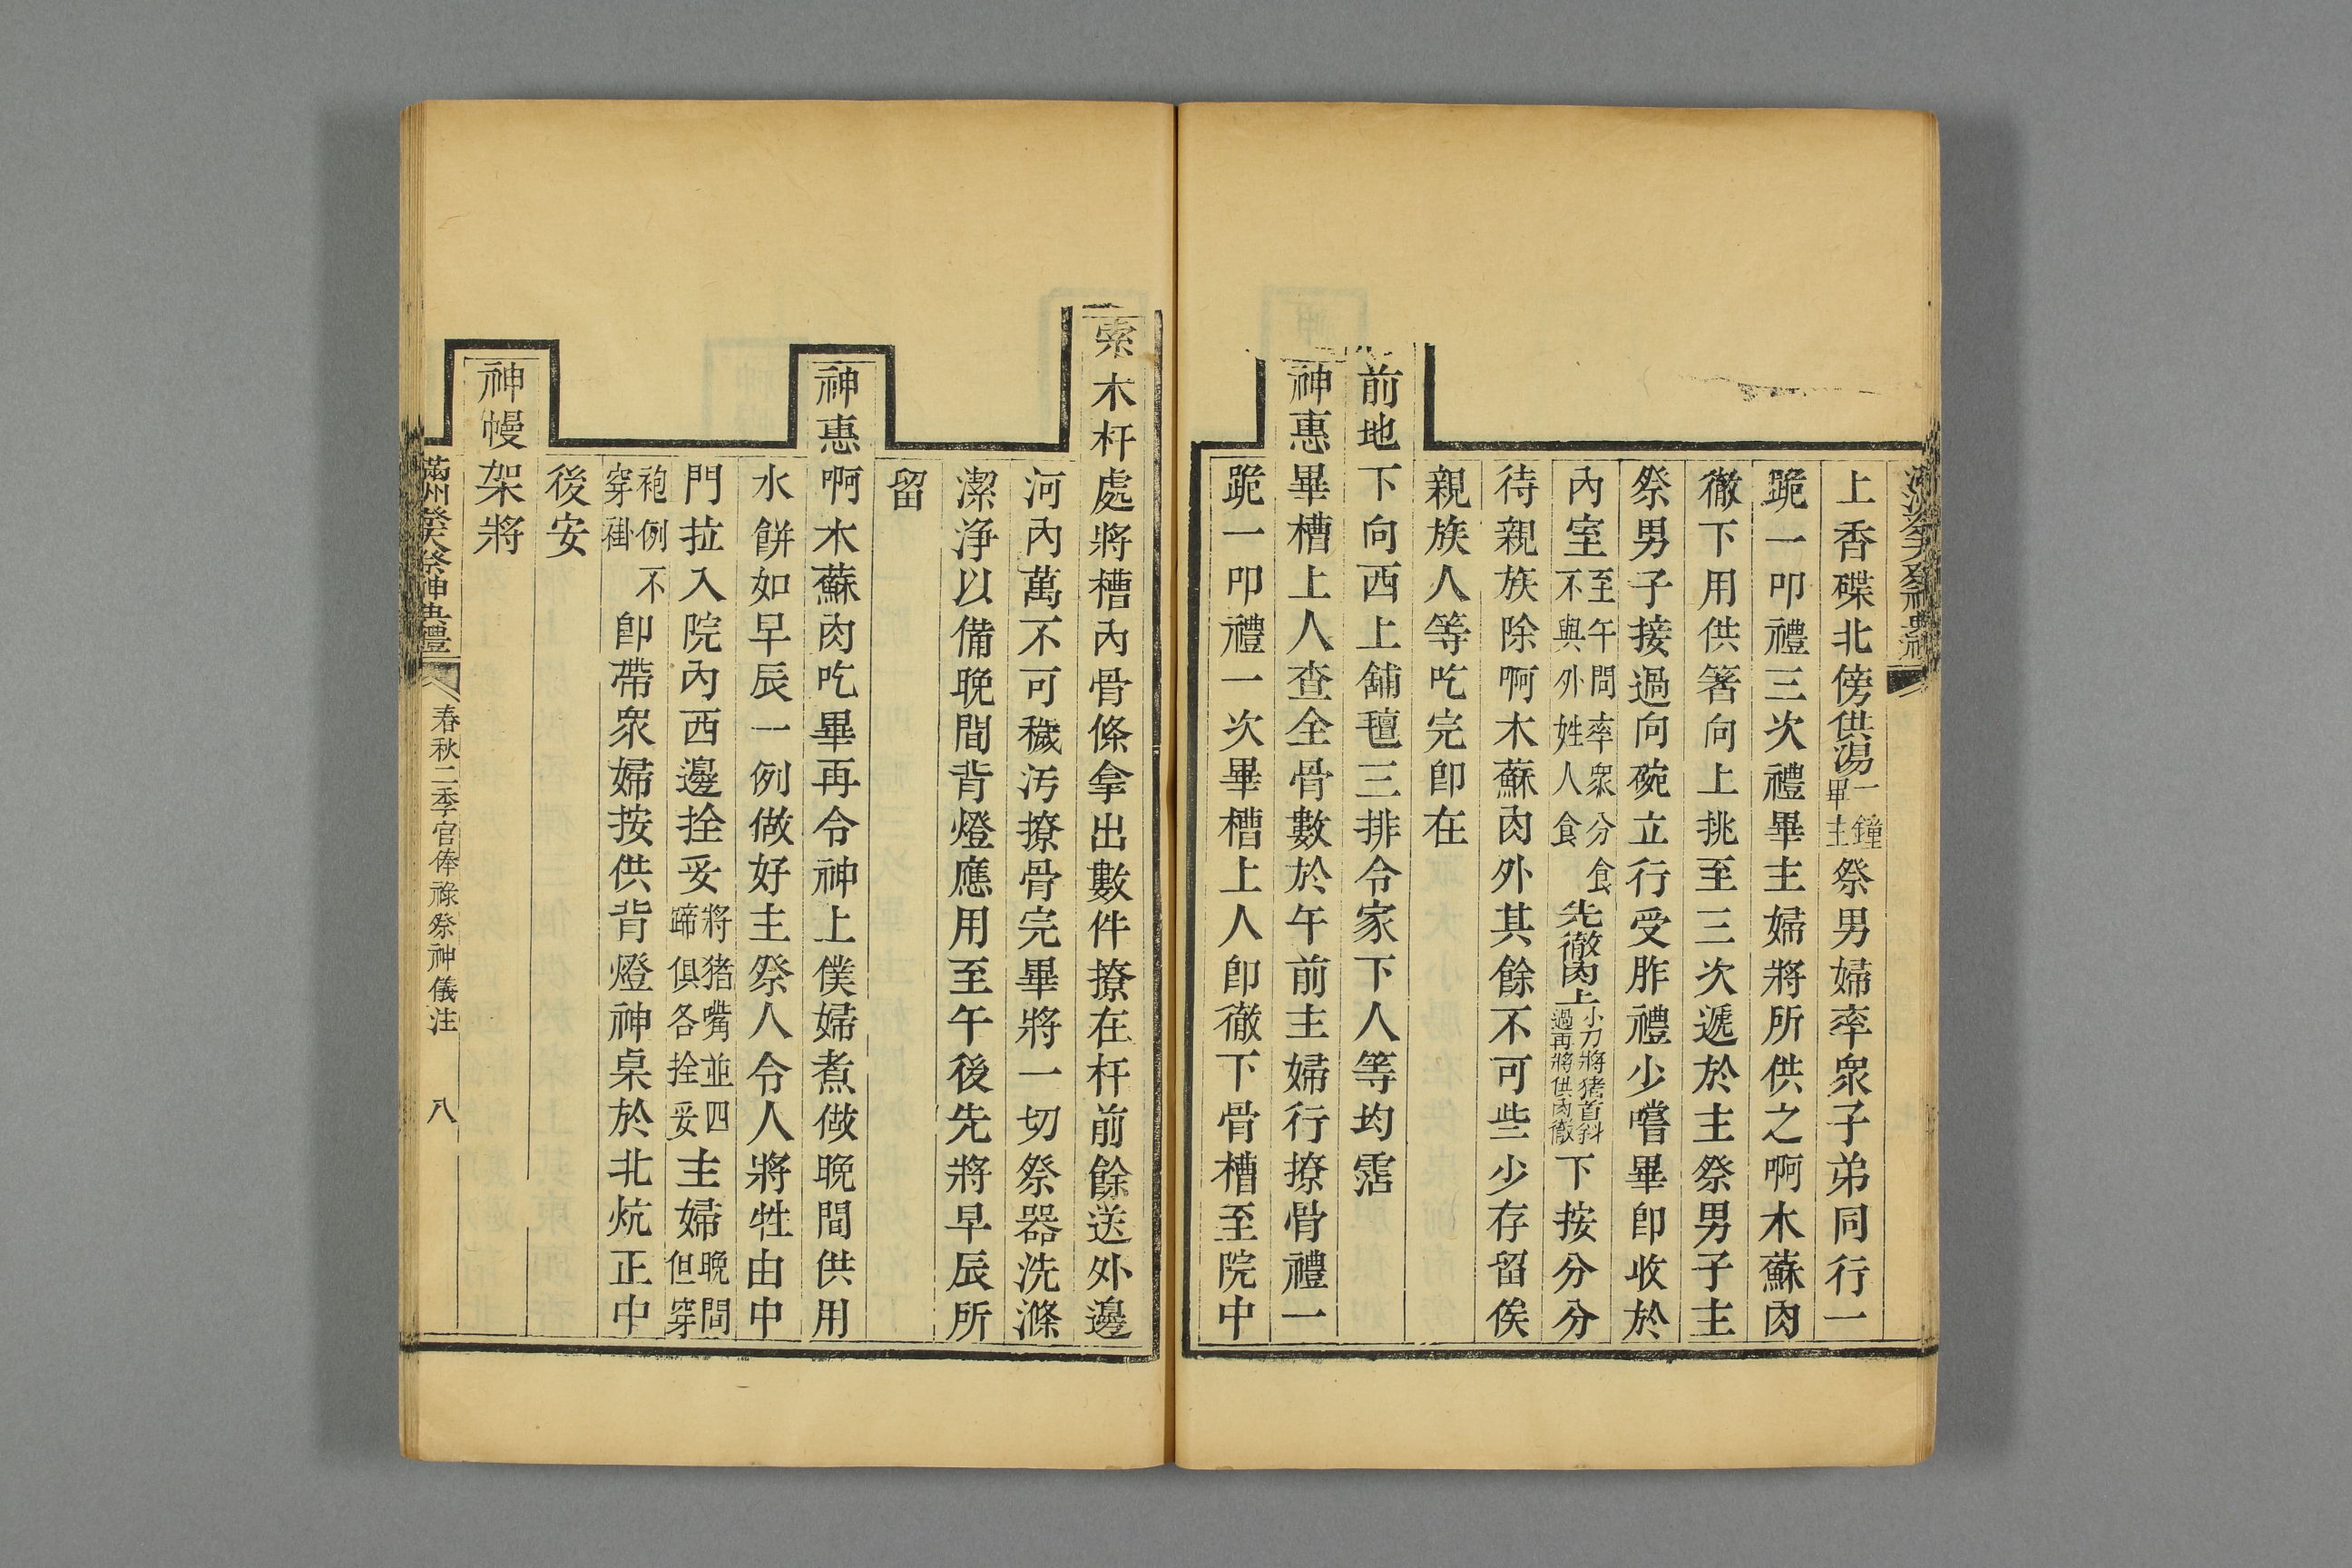 上香碟北傍供湯一鐘畢主祭男婦率衆子弟同行一
跪一叩禮三次禮畢主婦將所供之啊木蘇肉
徹下用供箸向上挑至三次遞於主祭男子主
祭男子接過向碗立行受胙禮少嚐畢卽收於
內室至午間率衆分食不與外姓人食先徹肉上小刀將猪首斜過再將供肉徹下按分分
待親族除啊木蘇肉外其餘不可些少存留俟
親族人等吃完卽在
前地下向西上舖氊三排令家下人等均霑
神惠畢槽上人查全骨數於午前主婦行撩骨禮一
跪一叩禮一次畢槽上人卽徹下骨槽至院中
索木杆處將槽內骨條拿出數件撩在杆前餘送外邊
河內萬不可穢汚撩骨完畢將一切祭器洗滌
潔淨以備晚間背燈應用至午後先將早辰所
留
神惠啊木蘇肉吃畢再令神上僕婦煮做晚間供用
水餅如早辰一例做好主祭人令人將牲由中
門拉入院內西邊拴妥將猪嘴並四蹄俱各拴妥主婦晚間但穿
袍例不穿褂卽帶衆婦按供背燈神桌於北炕正中
後安
神幔架將
滿州祭天祭神典禮 春秋二季官俸祿祭神儀注 八